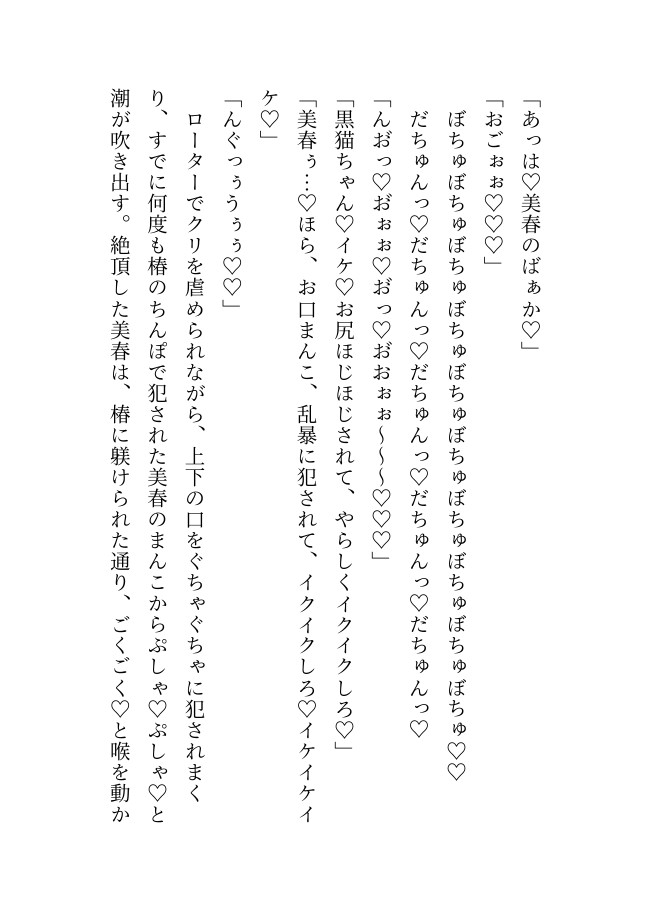 「あっは♡美春のばぁか♡」
「おごぉぉ♡♡♡」
　ぼちゅぼちゅぼちゅぼちゅぼちゅぼちゅぼちゅぼちゅぼちゅぼちゅ♡♡
　だちゅんっ♡だちゅんっ♡だちゅんっ♡だちゅんっ♡だちゅんっ♡
「んお゙っ♡お゙ぉぉ♡お゙っ♡お゙おぉぉ～～～♡♡♡」
「黒猫ちゃん♡イケ♡お尻ほじほじされて、やらしくイクイクしろ♡」
「美春ぅ…♡ほら、お口まんこ、乱暴に犯されて、イクイクしろ♡イケイケイ
ケ♡」
「んぐっぅうぅぅ♡♡」
　ローターでクリを虐められながら、上下の口をぐちゃぐちゃに犯されまく
り、すでに何度も椿のちんぽで犯された美春のまんこからぷしゃ♡ぷしゃ♡と
潮が吹き出す。絶頂した美春は、椿に躾けられた通り、ごくごく♡と喉を動か